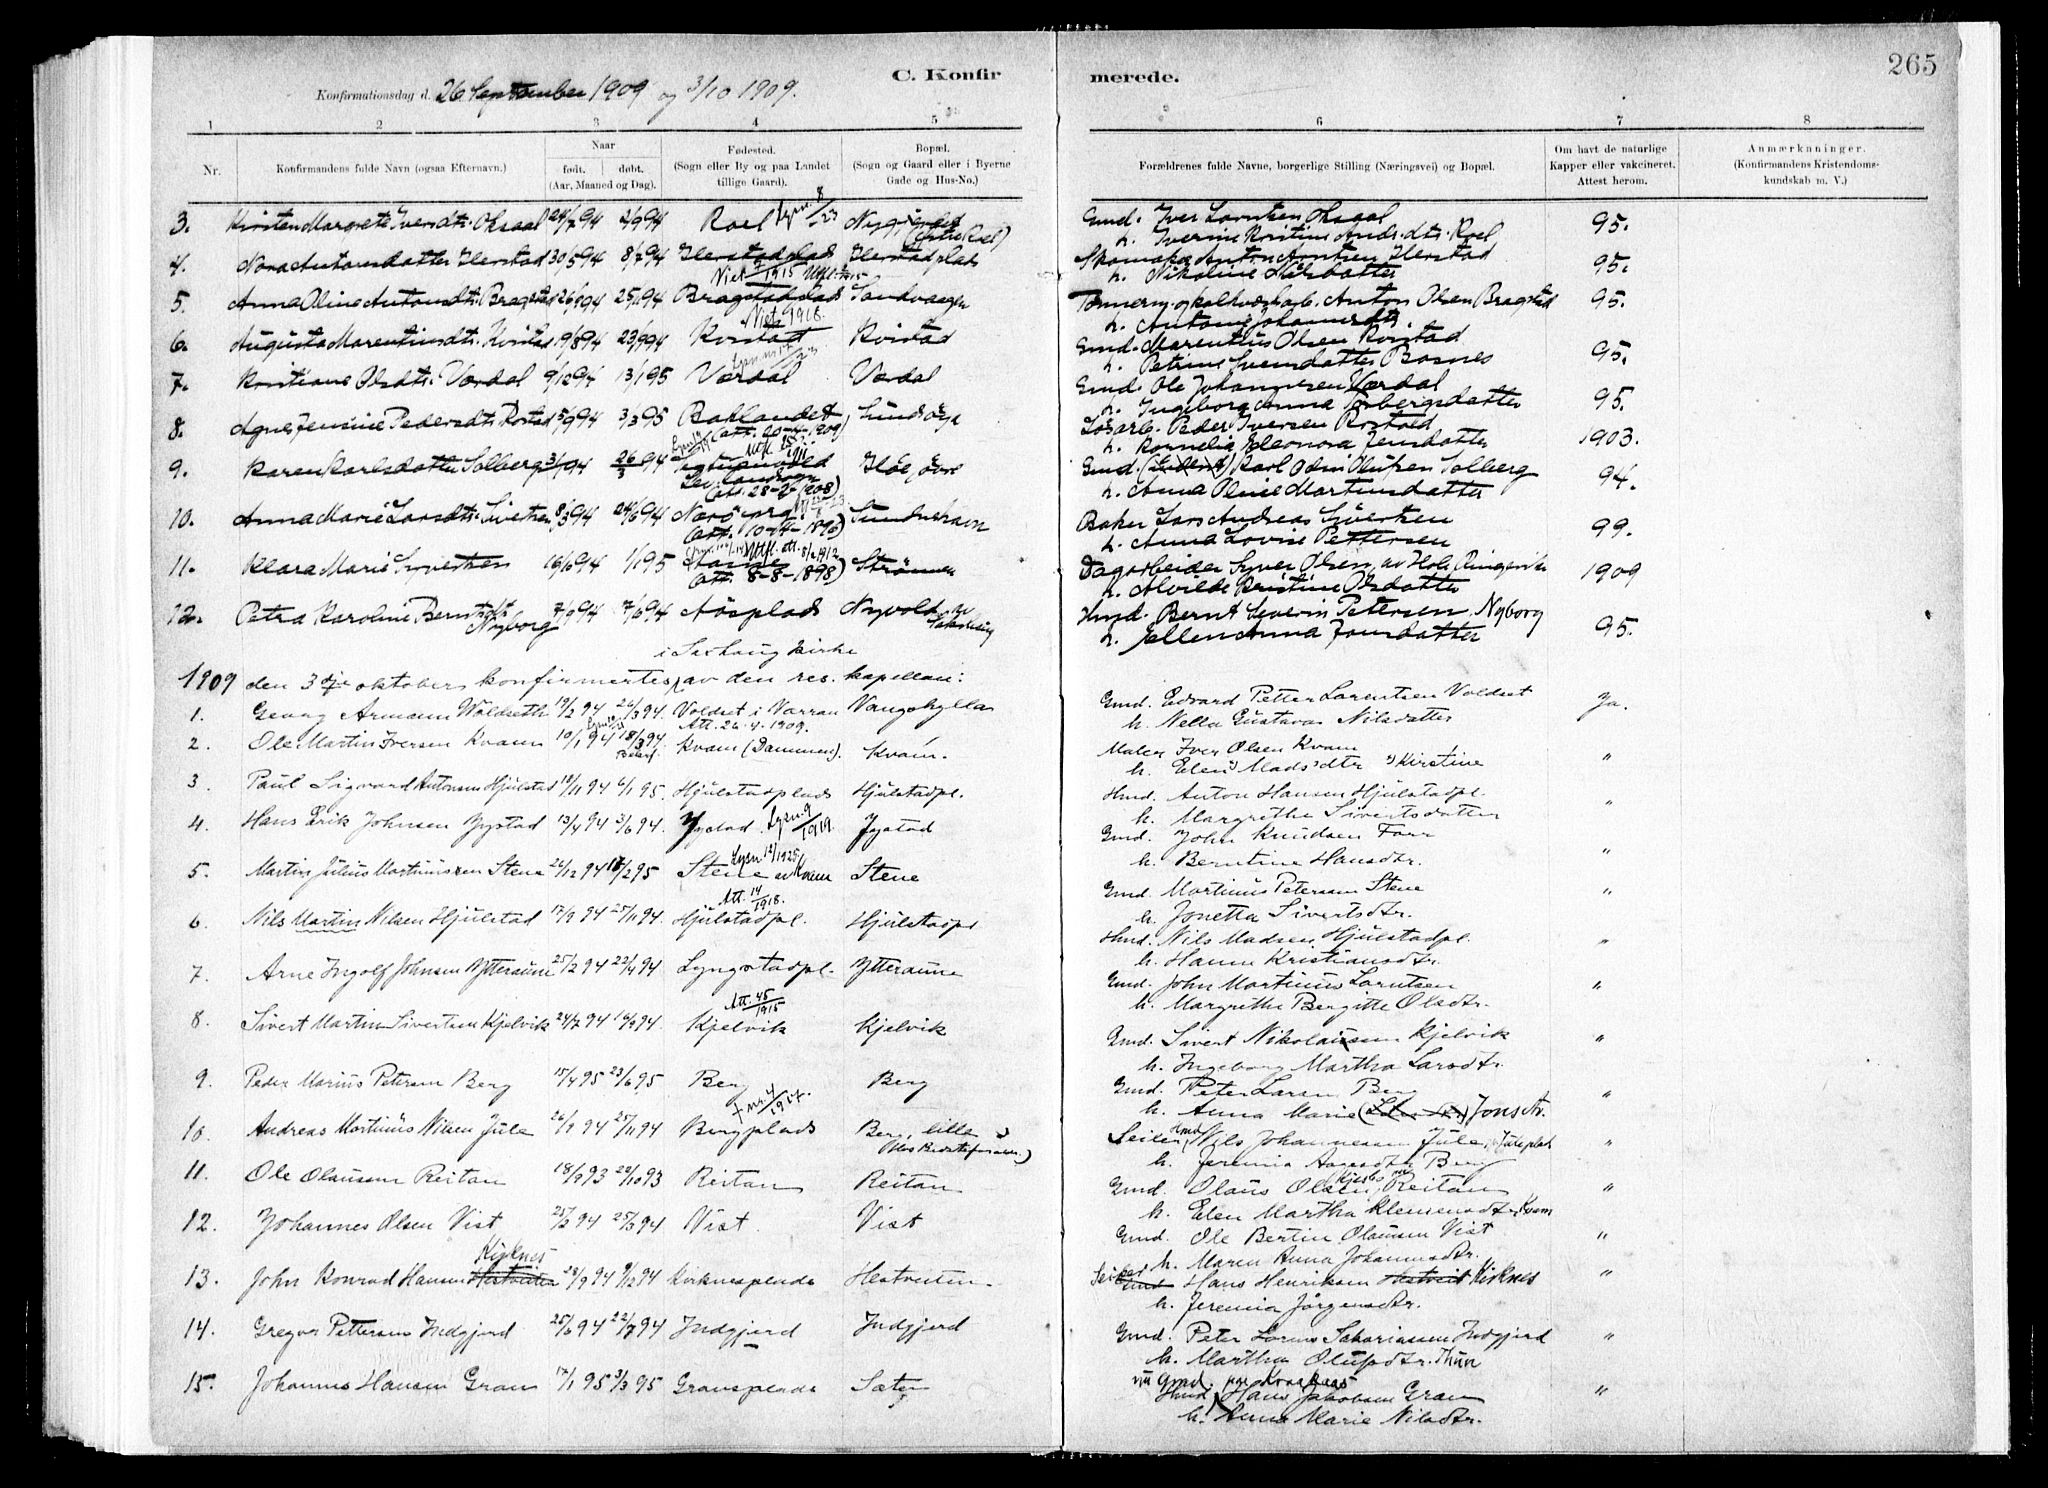 265
C. Konfir merede.
Konfirmationsdag d. 26 September 1909 og 3/10 1909.
1 2 3 4 5 6 7 8
Nr. Konfirmandens fulde Navn (ogsaa Efternavn.) Naar født. døbt. (Aar, Maaned og Dag). Fødested. (Sogn eller By og paa Landet tillige Gaard). Bopæl. (Sogn og Gaard eller i Byerne Gade og Hus-No.) Forældrenes fulde Navne, borgerlige Stilling (Næringsvei) og Bopæl. Om havt de naturlige Kapper eller vakcineret. Attest herom. Anmærkninger. (Konfirmandens Kristendomskundskab m. V.)
3. Kirsten Margrete Iversdt. Oksaal 24/7 94 2/9 94 Roel Gmd. Iver Lorntsen Oksaal 95.
h. Iverine Kristine Andr.dtr. Roel
4. Nora Antonsdatter Ilerstad 30/5 94 8/7 94 Ilerstadplads Ilerstadplads Skomaker Anton Arntsen Ilerstad 95.
h. Nikoline Nilsdatter
5. Anna Oline Antonsdt. Bragstad 26/8 94 25/11 94 Bragstadplads Sandvaagen Anton Olsen Bragstad 95.
h. Antonie Johannesdtr.
Viet 1918.
6. Augusta Marentiusdt. Kvistad 19/8 94 23/9 94 Kvistad Kvistad Gmd. Marentius Olsen Kvistad 95.
h. Petrine Svendsdatter Bosnes
7. Kristiane Olsdt. Værdal 9/12 94 13/1 95 Værdal Værdal Gmd. Ole Johannesen Værdal 95.
h. Ingeborg Anna Torbergsdatter
8. Agnes Jensine Pedersdt. Rostad 5/9 94 3/3 95 Baklandet Sundsöya Lösarb. Peder Iversen Rostad 1903.
(att. 20-4-1909) h. Kornelia Eleonora Jensdatter
9. Karen Karlsdatter Solberg 3/1 94 26/3 94 Gmd. Karl Odin Olufsen Solberg 94.
(att. 28-2-1908) h. Anna Oline Martinsdatter
10. Anna Marie Larsdt. Sivertsen 8/3 94 24/6 94 Nærö Sundneshavn Baker Lars Andreas Sivertsen 99.
(att. 10-4-1896) h. Anna Lovise Pettersen
11. Klara Marie Syvertsen 16/6 94 1/1 95 Stange Strömmen Dagarbeider Syver Olsen av Hole Ringerike 1909
(att. 8-8-1898) h. Alvilde Kristine Olsdatter
12. Petra Karoline Berntsdt. Nyborg 7/9 94 7/6 94 Aösplads Nyvold Hmd. Bernt Severin Petersen Nyborg 95.
h. Ellen Anna Jonsdatter
i Saxhaug kirke
1909 den 3dje oktober konfirmertes av den res. kapellan:
1. Georg Armann Woldseth 19/2 94 26/3 94. Voldset i Verran Vangshylla Gmd. Edvard Petter Lorentsen Voldset Ja.
Att. 26.4.1909. h. Nella Gustava Nilsdatter
2. Ole Martin Iversen Kvam 10/1 94 18/3 94 Kvam (Dammen). Kvam. Maler Iver Olsen Kvam "
h. Elen Madsdtr Kirstine
3. Paul Sigvard Antonsen Hjulstad 18/11 94 6/1 95. Hjulstadplads Hjulstadpl. Hmd. Anton Hansen Hjulstadpl. "
h. Margrethe Sivertsdatter
4. Hans Erik Johnsen Ystad 13/4 94 3/6 94. Ystad Lysn. 9/1919. Ystad Gmd. John Knudsen Farr "
h. Berntine Hansdtr.
5. Martin Julius Martinussen Stene 26/12 94 17/2 95 Stene av Kvam Stene Gmd. Martinus Petersen Stene "
h. Jonetta Sivertsdtr.
Att. 14/1918.
6. Nils Martin Nilsen Hjulstad 17/9 94 25/11 94. Hjulstadpl. Hjulstadpl Hmd. Nils Madsen Hjulstadpl. "
h. Hanna Kristiansdtr.
7. Arne Ingolf Johnsen Ytteraune 25/2 94 22/4 94 Lyngstadpl. Ytteraune Gmd. John Martinus Lorntsen "
h. Margrethe Bergitte Olsdtr.
Att. 45/1915
8. Sivert Martin Sivertsen Kjelvik 24/7 94 16/9 94. Kjelvik Kjelvik Gmd. Sivert Nikolaisen Kjelvik "
h. Ingeborg Martha Larsdtr.
9. Peder Marius Petersen Berg 15/4 95 23/6 95. Berg Berg Gmd. Peter Larsen Berg "
h. Anna Marie Jonsdtr.
10. Andreas Martinus Nilsen Jule 26/9 94 25/11 94 Bergplads Berg, lille Nils Johannessen Jule, Juleplads "
h. Jeremia Aagesdtr Berg
11. Ole Olausen Reitan 18/9 93 22/10 93 Reitan Reitan Gmd. Olaus Olsen Reitan "
h. Elen Martha Klemensdtr. Kvam
12. Johannes Olsen Vist 25/2 94 25/3 94 Vist. Vist Gmd. Ole Bertin Olausen Vist "
h. Maren Anna Johannesdtr.
13. John Konrad Hansen Kirknes 23/9 94 9/12 94 Kirknesplads Hestveiten. Hans Henriksen Kirknes "
h. Jeremia Jörgensdtr.
14. Gregor Pettersen Indgjerd 25/6 94 22/7 94 Indgjerd Indgjerd Gmd. Peter Lorens Sakariassen Indgjerd "
h. Martha Olufsdtr. Thun
15. Johannes Hansen Gran 17/1 95 3/3 95 Gransplads Sæter Hmd. Hans Jakobsen Gran "
h. Anna Marie Nilsdtr.